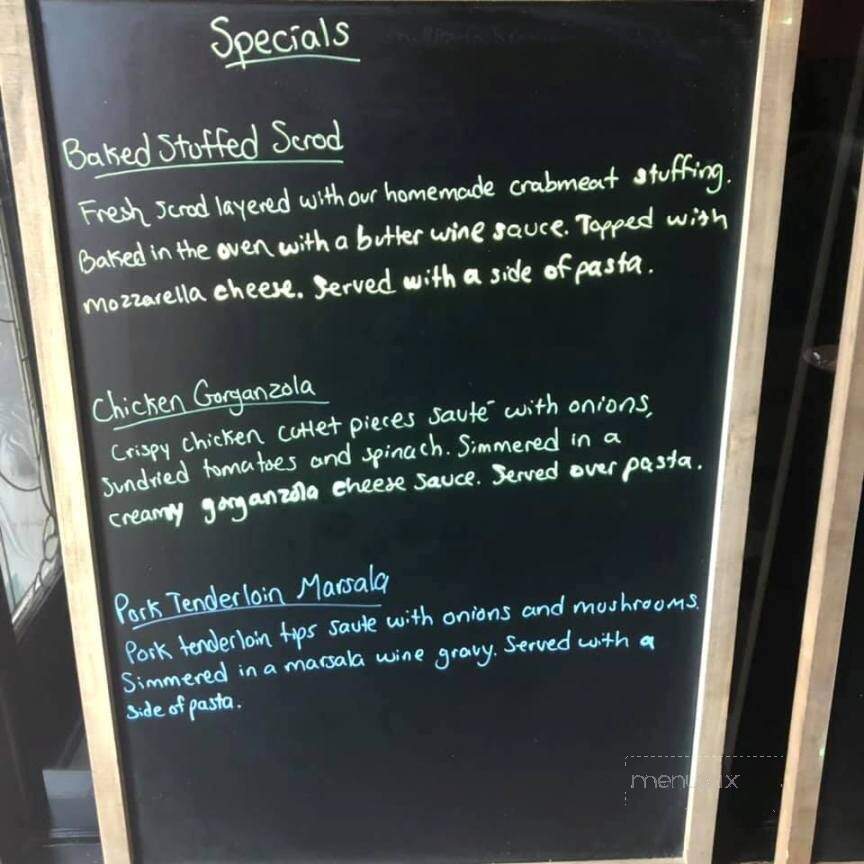 Specials
Baked Stuffed Scrod
Fresh Scrod layered with our homemade crabmeat stuffing.
Baked in the oven with a butter wine sauce. Topped with
mozzarella cheese. Served with a side of pasta.
Chicken Gorganzola
Crispy chicken cutlet pieces sauté with onions,
sundried tomatoes and spinach. Simmered in a
creamy gorganzola cheese sauce. Served over pasta.
Pork Tenderloin Marsala
Pork tenderloin tips saute with onions and mushrooms.
Simmered in a marsala wine gravy. Served with a
side of pasta.